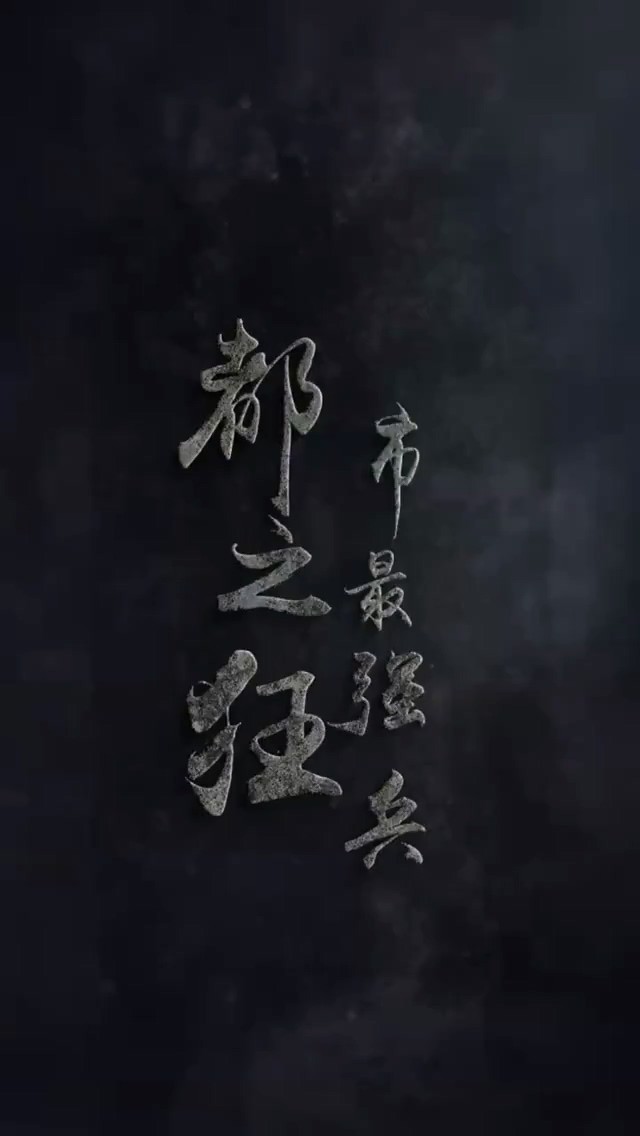 都市
之最强
狂兵